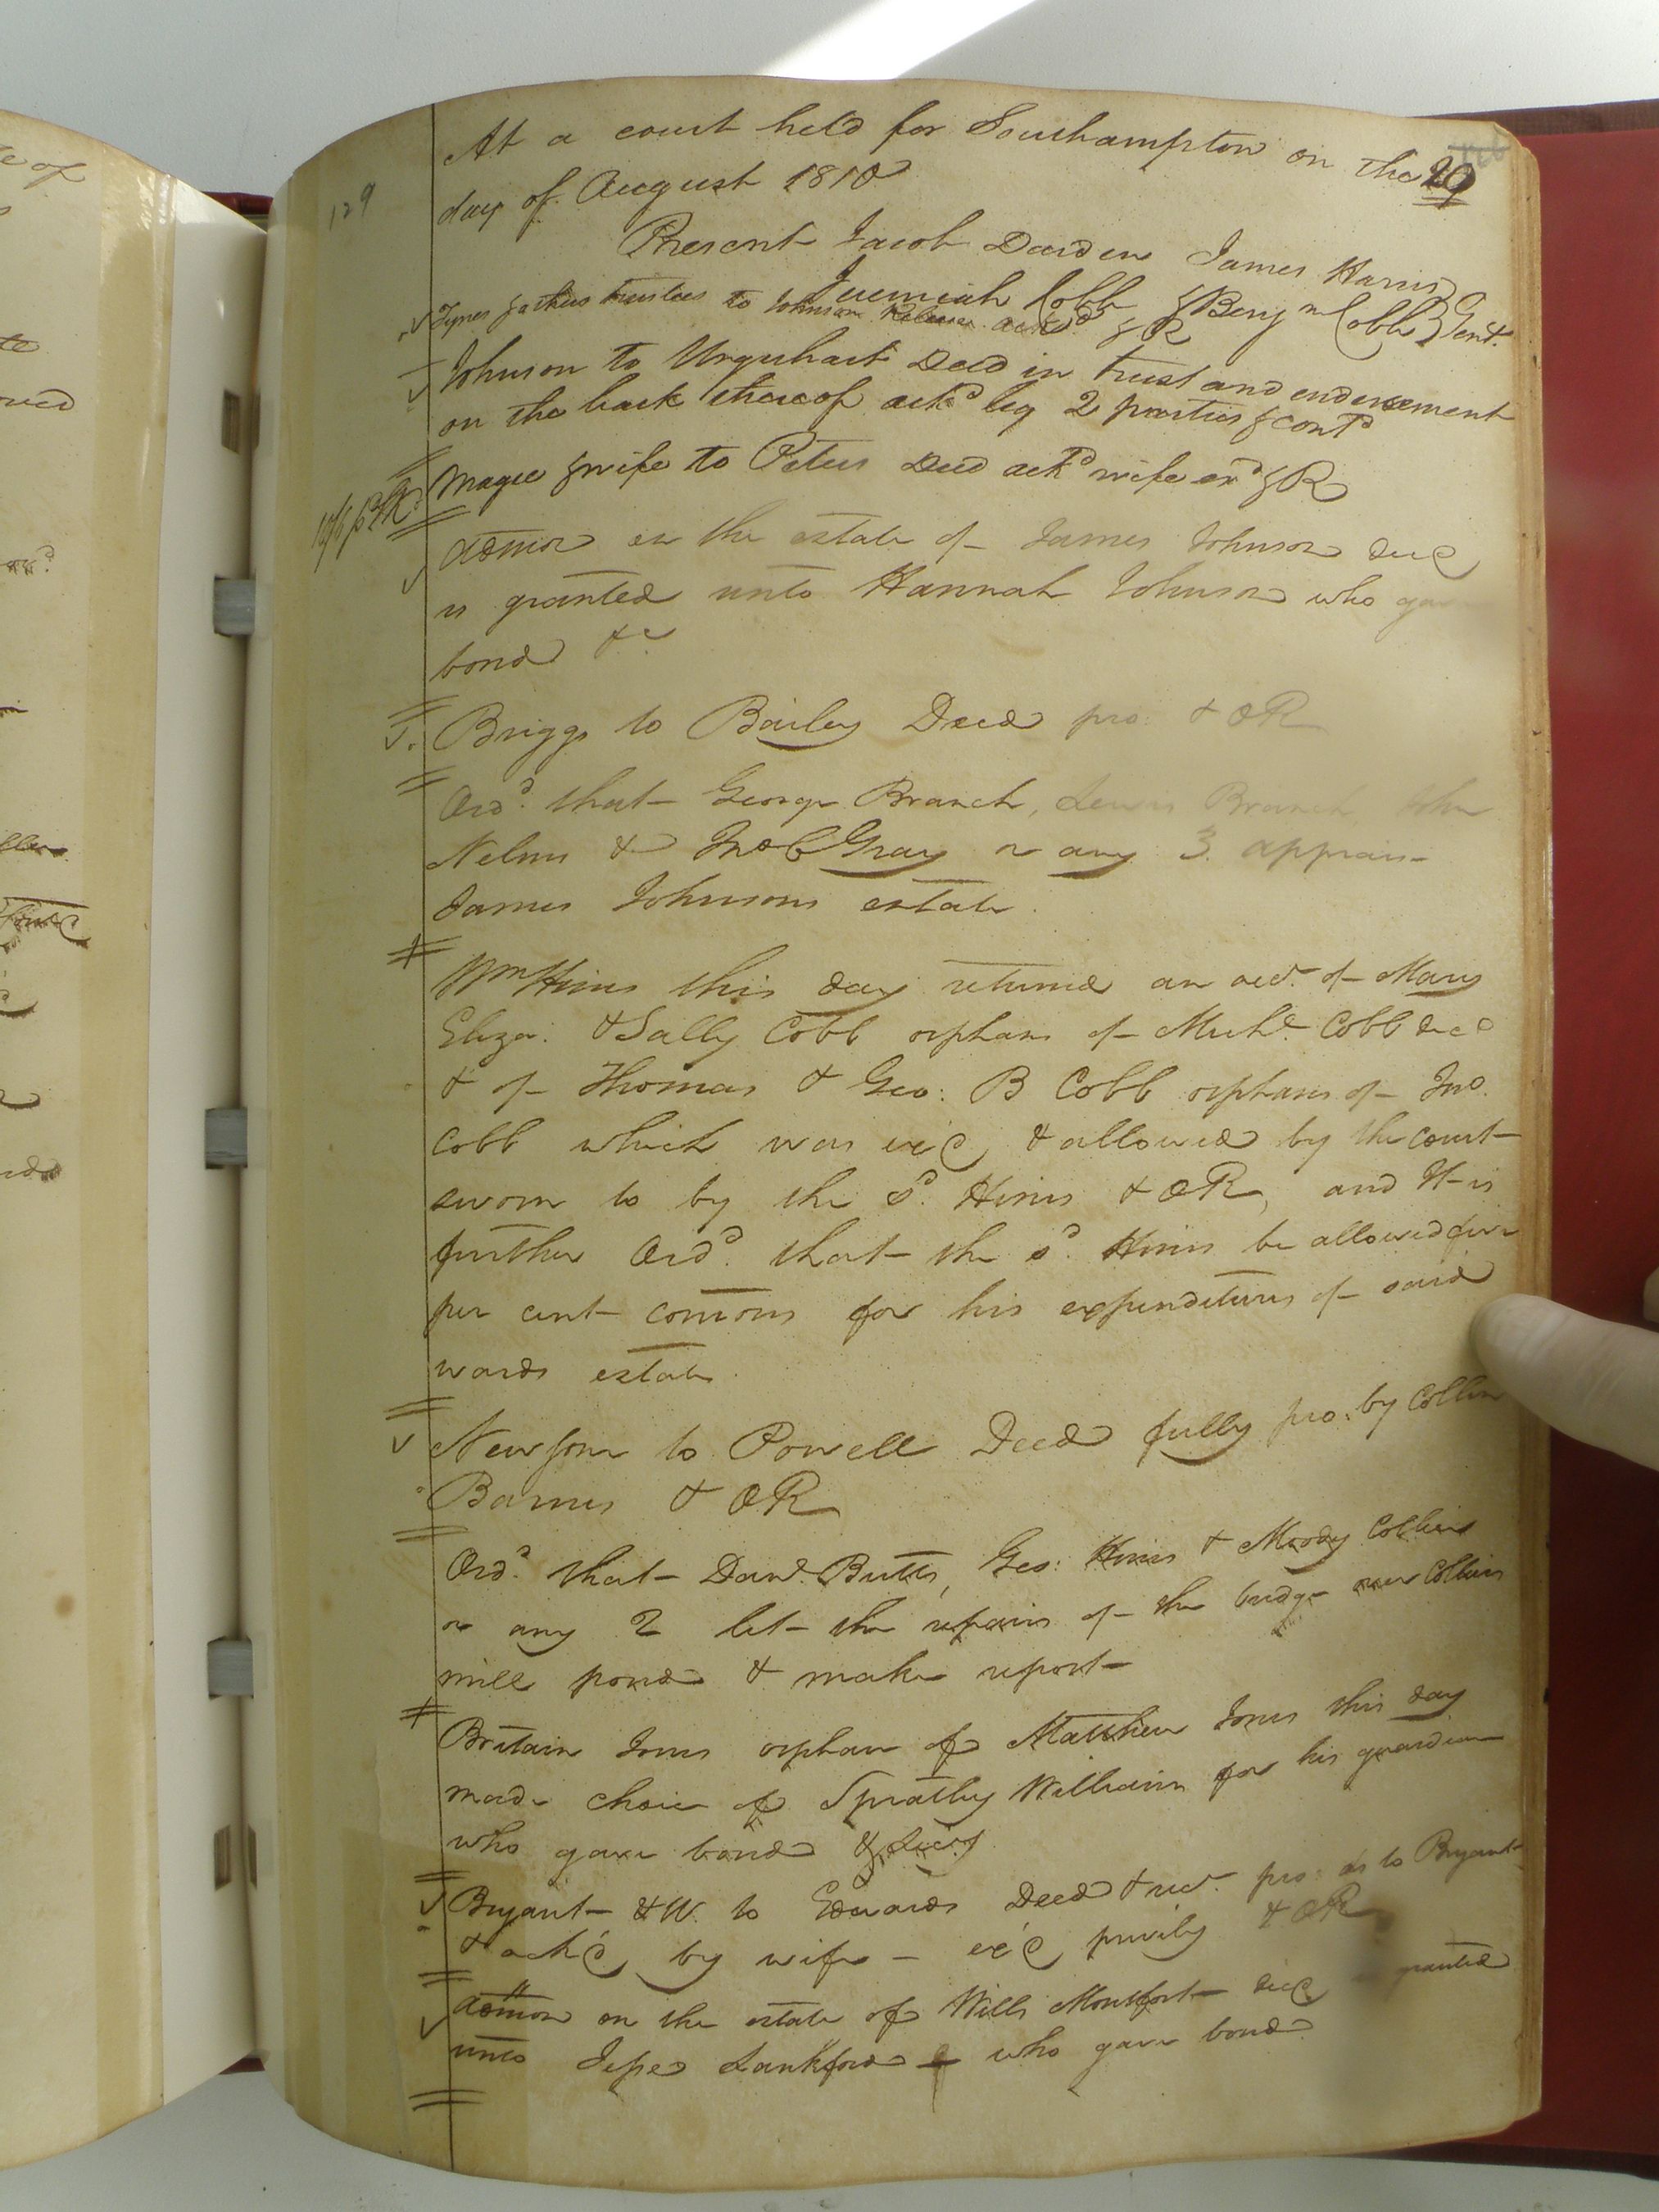 At a court held for Southampton on the 20
day of August 1810
129
Present Jacob Darden James Harris
Jeremiah Cobb & Benj n Cobb } Gent.
Tynes & others trustees to Johnson Release ackd & R
Johnson to Urquhart Deed in trust and endorsement
on the back thereof ackd by 2 parties & contd
Magee & wife to Peters Deed ackd wife exd & R
admon on the estate of James Johnson decd
is granted unto Hannah Johnson who
bond &c
Briggs to Bailey Deed pro: & OR
Ord. that George Branch, Lewis Branch John
Nelms & Jno C Gray or any 3. apprais
James Johnsons estate.
Wm Hines this day returned an acct. of Mary
Eliza: & Sally Cobb orphans of Michl. Cobb decd
& of Thomas & Geo: B Cobb orphans of Jno.
Cobb which was exd & allowed by the court
sworn to by the sd. Hines & OR, and It is
further Ordd. that the sd. Hines be allowed five
per cent comions for his expenditures of said
wards estate.
Newsom to Powell Deed fully pro: by Collin
Barnes & OR
Ordd. that Danl. Butts, Geo: Hines & Moody Collins
or any 2 let the repairs of the bridge over Collins
mill pond & make report
Britain Jones orphan of Matthew Jones this day
made choice of Spratley Williams for his guardian
who gave bond & Secy
Bryant & W. to Edwards Deed & rect. pro: as to Bryant
& ack'd by wife – ex'd privily & OR
admon on the estate of Wills Montfort decd granted
unto Jesse Lankford who gave bond.